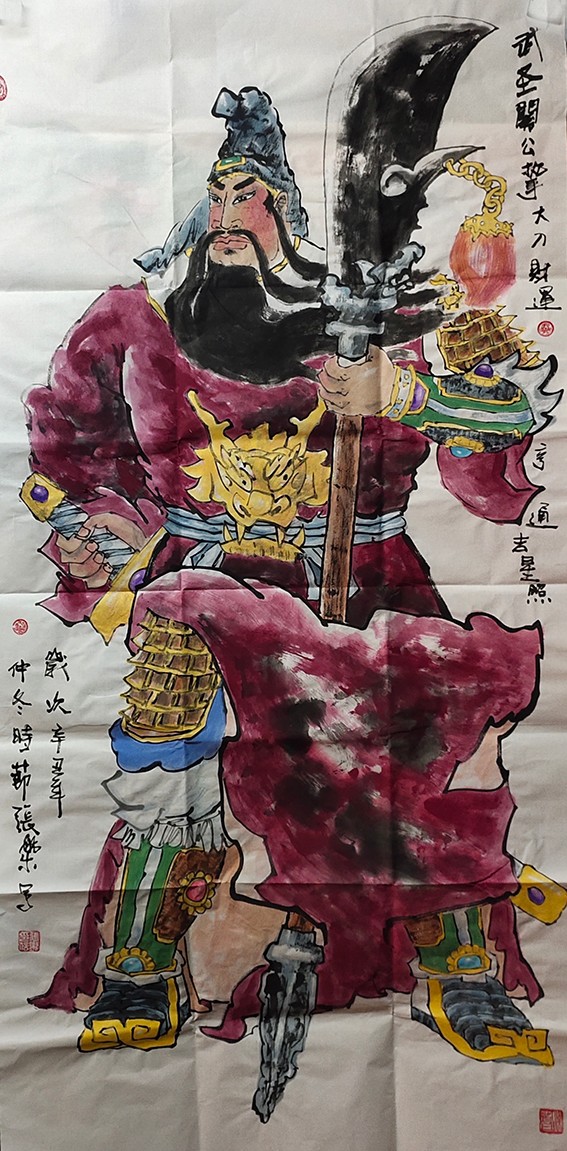 武圣關公擎大刀財運
亨通吉星照
歲次辛丑年
仲冬時節張写